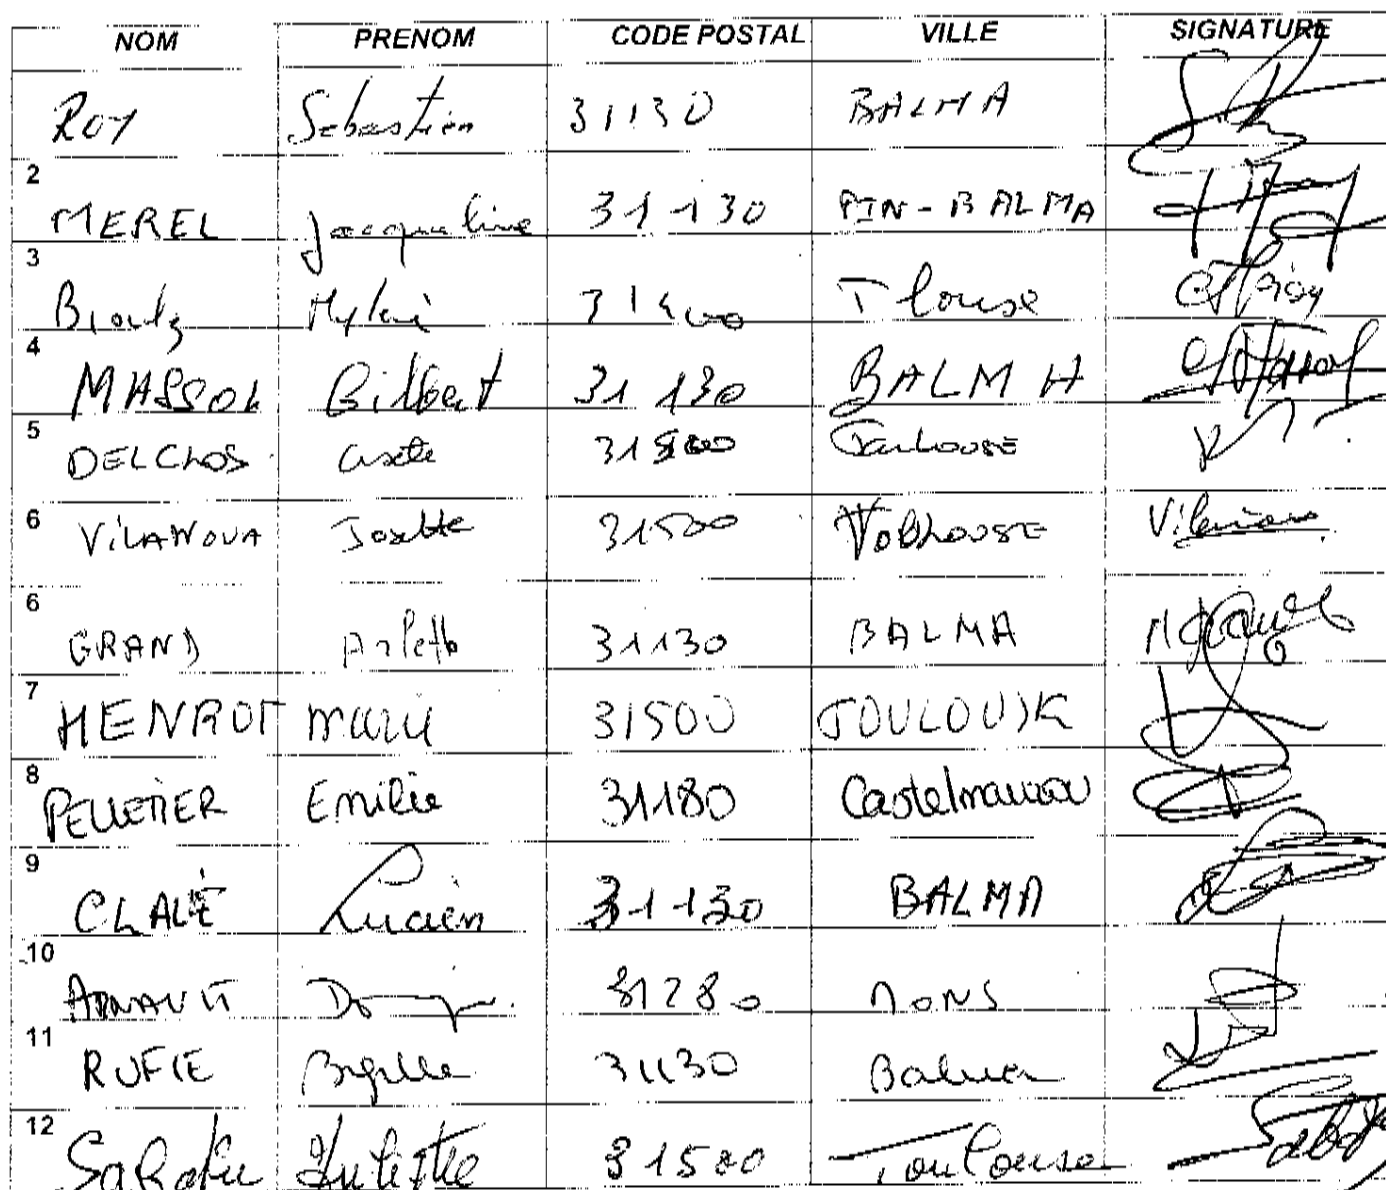 NOM PRENOM CODE POSTAL VILLE SIGNATURE
ROY Sébastien 31130 BALMA
2 MEREL Jacqueline 31130 PIN-BALMA
3 31400 Tlouse
4 MASSOL Gilbert 31 130 BALMA
5 DELCLOS 31500 Toulouse
6 ViLANOVA Josette 31500 TOULOUSE
6 GRAND Arlette 31130 BALMA
7 HENROT Marie 31500 TOULOUSE
8 PELLETIER Emilie 31180 Castelmaurou
9 Lucien 31130 BALMA
10 31280 MONS
11 RUFIE Brigitte 31130 Balma
12 31500 Toulouse